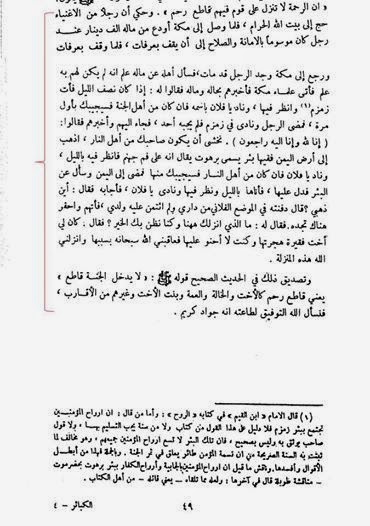 « ان الرحمة لا تنزل على قوم فيهم قاطع رحم » . وحكي أن رجلاً من الاغنياء
حج إلى بيت الله الحرام ، فلما وصل إلى مكة أودع من ماله الف دينار عند
رجل كان موسوماً بالامانة والصلاح إلى أن يقف بعرفات ، فلما وقف بعرفات
ورجع إلى مكة وجد الرجل قد مات ، فسأل أهله عن ماله علم انه لم يكن لهم به
علم فأتى علماء مكة فأخبرهم بحاله وماله فقالوا له : إذا كان نصف الليل فأت
زمزم (١) وانظر فيها ، وناد يا فلان باسمه فان كان من أهل الجنة فسيجيبك بأول
مرة ، فمضى الرجل ونادى في زمزم فلم يجبه أحد ، فجاء اليهم وأخبرهم فقالوا :
( إنا لله وإنا اليه راجعون ) . نخشى أن يكون صاحبك من أهل النار ، اذهب
إلى أرض اليمن ففيها بئر يسمى برهوت يقال انه على فم جهنم فانظر فيه بالليل ،
وناد يا فلان فان كان من أهل النار فسيجيبك منها فمضى إلى اليمن وسأل عن
البئر فدل عليها ، فأتاها بالليل ونظر فيها ونادى يا فلان ، فأجابه فقال : أين
ذهبي ؟ قال دفنته في الموضع الفلاني من داري ولم ائتمن عليه ولدي ، فأتهم واحفر
هناك تجده فقال له : ما الذي انزلك ههنا وكنا نظن بك الخير ؟ فقال : كان لي
أخت فقيرة هجرتها وكنت لا أحنو عليها فعاقبني الله سبحانه بسببها وانزلني
الله هذه المنزلة .
وتصديق ذلك في الحديث الصحيح قوله ﷺ : « لا يدخل الجنة قاطع »
يعني قاطع رحم كالأخت والخالة والعمة وبنت الأخت وغيرهم من الأقارب ،
فنسأل الله التوفيق لطاعته انه جواد كريم .
(١) قال الامام « ابن القيم » في كتابه « الروح » : وأما من قال : ان ارواح المؤمنين
تجتمع ببئر زمزم فلا دليل على هذا القول من كتاب ولا من سنة يجب التسليم بهما ، ولا قول
صاحب يوثق به وليس بصحيح ، فان تلك البئر لا تسع ارواح المؤمنين جميعهم ، وهو مخالف لما
ثبتت به السنة الصريحة من ان نسمة المؤمن طائر يعلق في ثمر الجنة . وبالجملة فهذا من أبطل
الأقوال وأفسدها . وناقش ما قيل ان ارواح المؤمنين بالجابية وأرواح الكفار ببئر برهوت بحضرموت
– مناقشة طويلة قال في آخرها : ولعله مما تلقاه .. يعني قائله – من أهل الكتاب .
٤٩
الكبائر – ٤